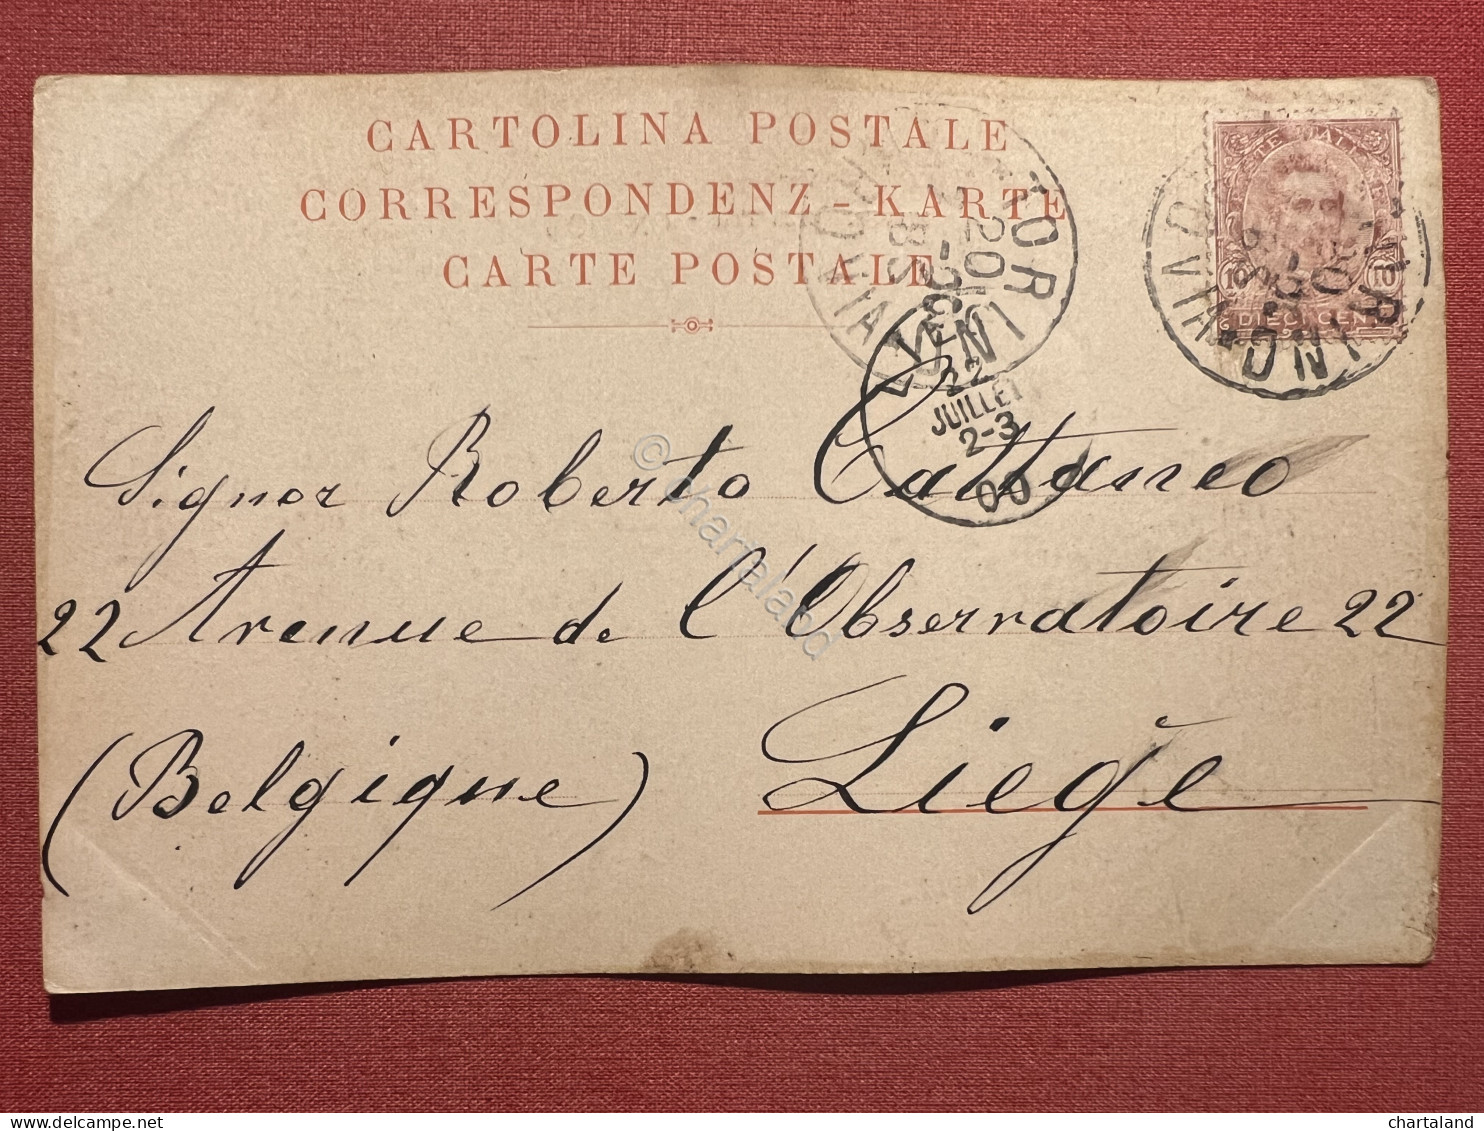 CARTOLINA POSTALE
CORRESPONDENZ-KARTE
CARTE POSTALE
TORINO
20
LIÈGE
22
JUILLET
2-3
00
10 10
DIECI CENT
Signor Roberto Cattaneo
22 Avenue de l'Observatoire 22
Liège
(Belgique)
© chartaland
chartaland